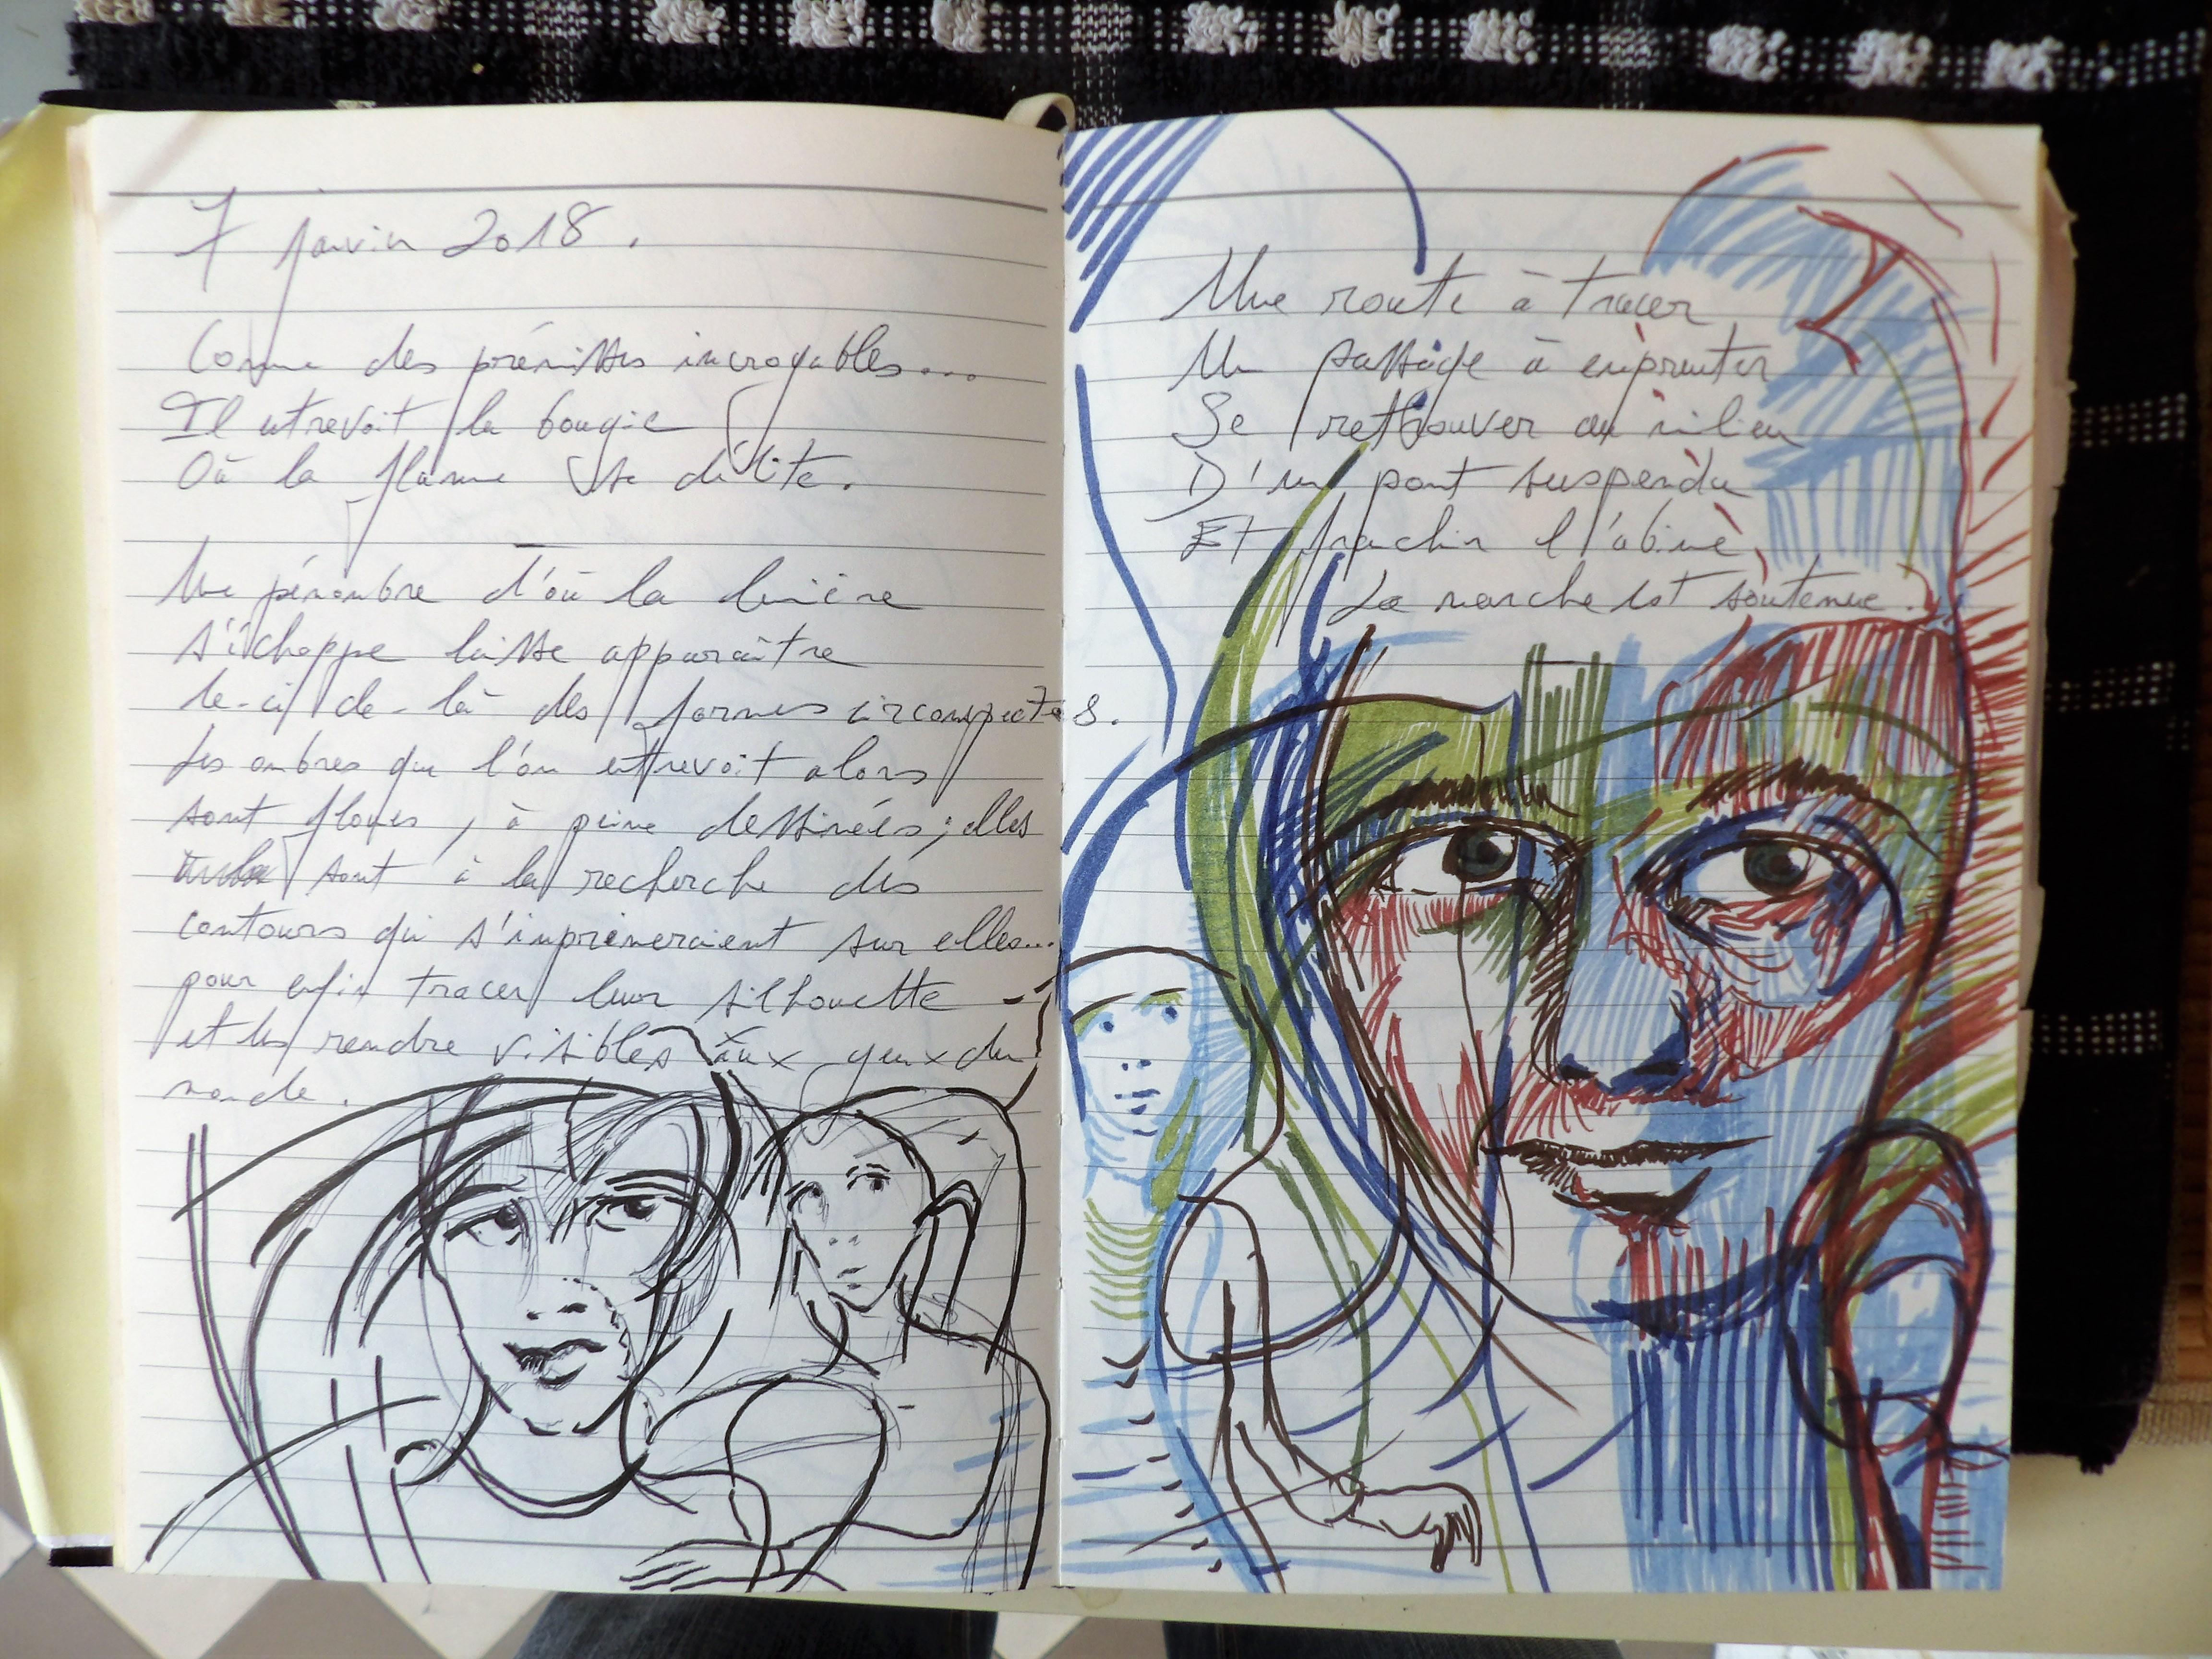 7 janvier 2018.
Comme des prémisses incroyables...
Il entrevoit la bougie
Où la flamme se délite.
Une pénombre d'où la lumière
s'échappe laisse apparaître
de-ci de-là des formes incomplètes.
Les ombres que l'on entrevoit alors
sont floues, à peine dessinées; elles
sont à la recherche des
contours qui s'imprimeraient sur elles...
pour enfin tracer leur silhouette
et les rendre visibles aux yeux du
monde.
Une route à tracer
Un passage à emprunter
Se retrouver au milieu
D'un pont suspendu
Et franchir l'abîme,
La marche est soutenue.